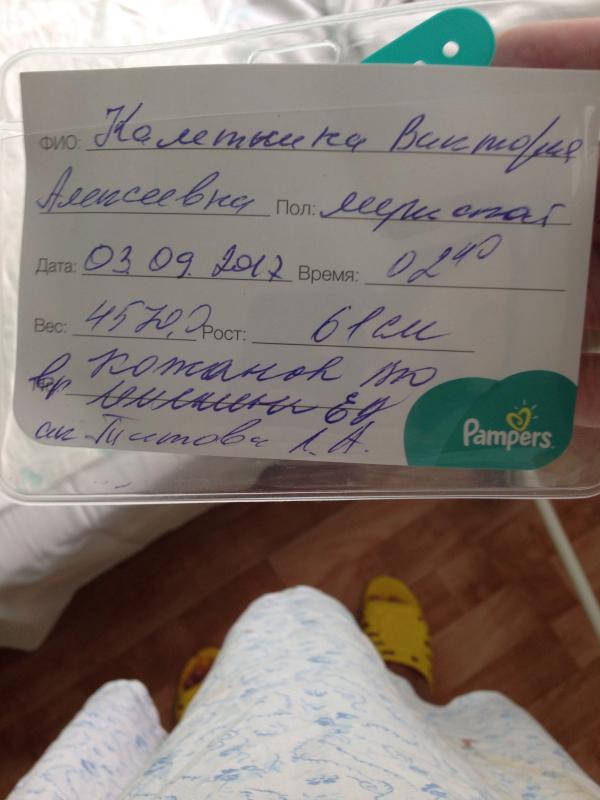 ФИО: Калеткина Виктория
Алексеевна Пол:
Дата: 03.09.2017 Время: 02 40
Вес: 4570,0 Рост: 61 см
вр Кожанок
ак. Титова Л.А.
Pampers